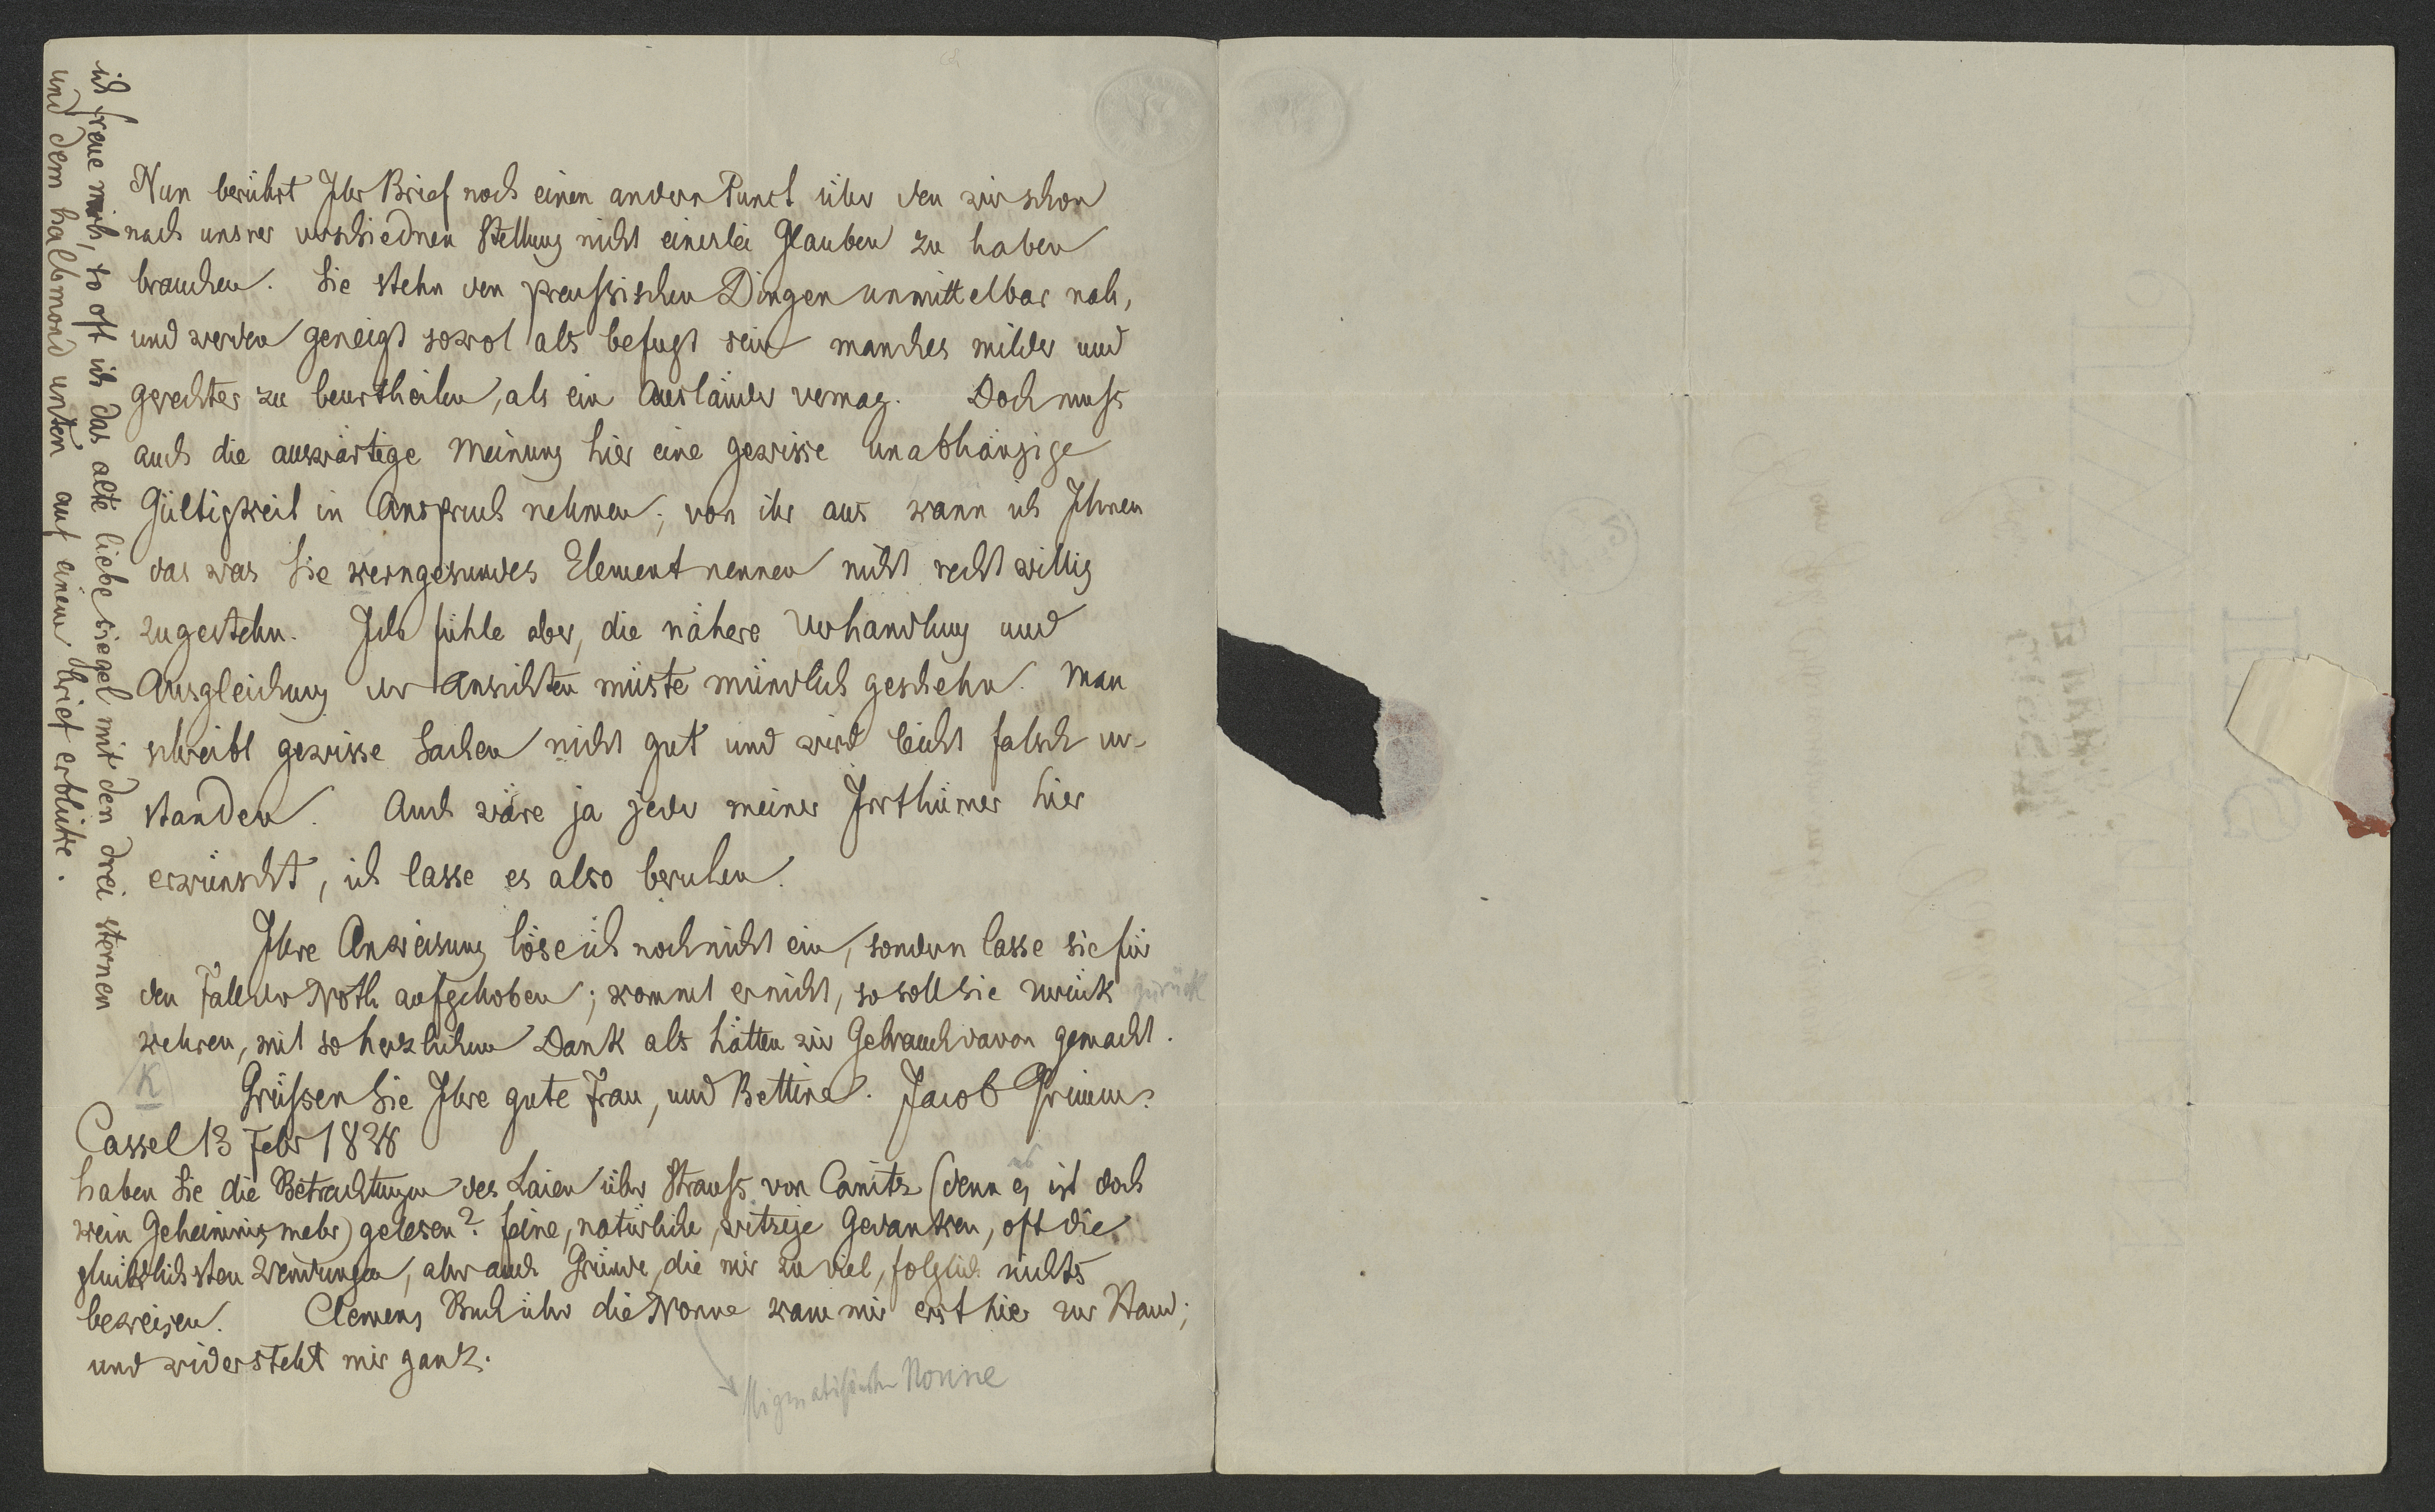 Nun berührt Ihr Brief noch einen andern Punct über den wir schon
nach unsrer verschiednen Stellung nicht einerlei Glauben zu haben
brauchen. Sie stehn den preußischen Dingen unmittelbar nah,
und werden geneigt sowol als befugt sein manches milder und
gerechter zu beurtheilen, als ein Ausländer vermag. Doch muß
auch die auswärtige Meinung hier eine gewisse unabhängige
Gültigkeit in Anspruch nehmen; von ihr aus kann ich Ihnen
das was Sie kerngesundes Element nennen nicht recht willig
zugestehn. Ich fühle aber, die nähere Verhandlung und
Ausgleichung der Ansichten müste mündlich geschehn. Man
schreibt gewisse Sachen nicht gut und wird leicht falsch ver-
standen. Auch wäre ja jeder meiner Irrthümer hier
erwünscht, ich lasse es also beruhen.
Ihre Anweisung löse ich noch nicht ein, sondern lasse sie für
den Fall der Noth aufgehoben; kommt er nicht, so soll sie zurück zurück
kehren, mit so herzlichem Dank als hätten wir Gebrauch davon gemacht.
K Grüßen Sie Ihre gute Frau, und Bettine. Jacob Grimm.
Cassel 13 Febr 1838
haben Sie die Betrachtungen des Laien über Strauß von Canitz (denn es ist doch
kein Geheimnis mehr) gelesen? feine, natürliche, witzige Gedanken, oft die
glücklichsten Wendungen, aber auch Gründe, die mir zu viel, folglich nichts
beweisen. Clemens Buch über die Nonne kam mir erst hier zur Hand;
und widersteht mir ganz.
stigmatisierte Nonne
ich freue mich, so oft ich das alte liebe siegel mit den drei sternen
und dem halbmond unten auf einem brief erblicke.